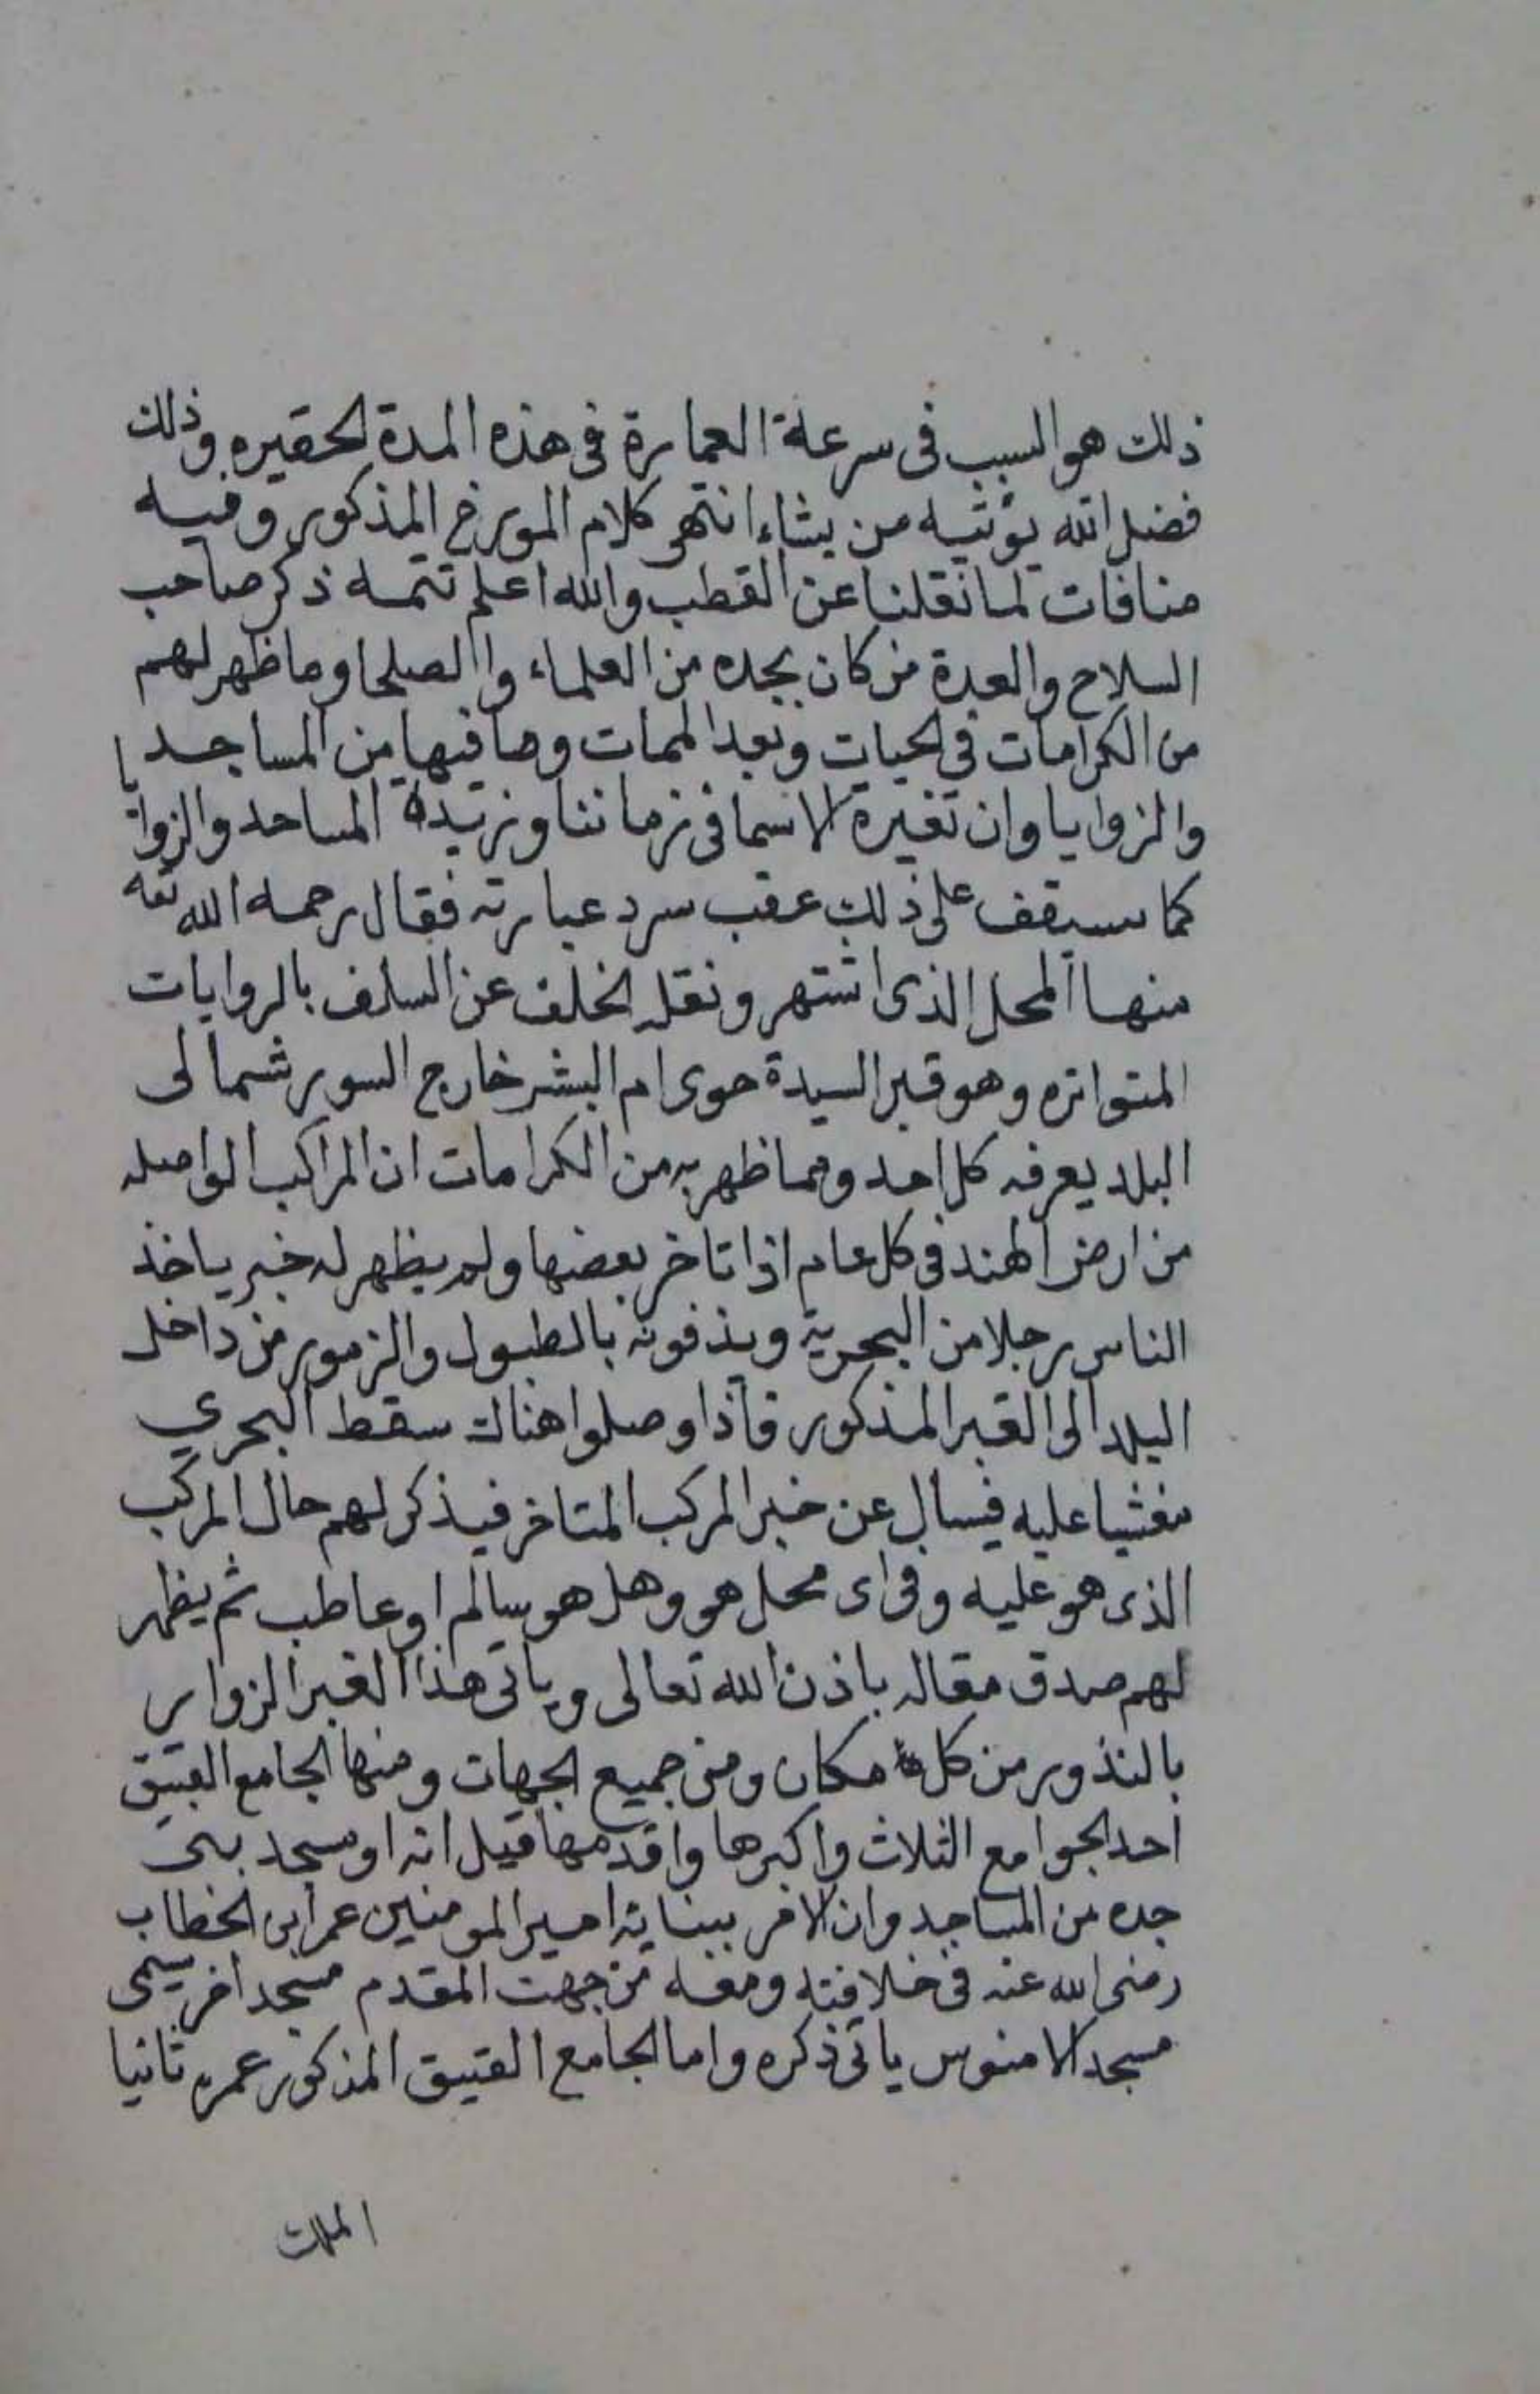 ذلك هو السبب فى سرعة العمارة فى هذه المدة الحقيره وذلك
فضل الله يؤتيه من يشاء انتهى كلام المورخ المذكور وفيه
منافات لما نقلنا عن القطب والله اعلم تتمه ذكر صاحب
السلاح والعدة من كان بجده من العلماء والصلحا وما ظهر لهم
من الكرامات فى الحيات وبعد الممات وما فيها من المساجد
والزوايا وان تغيرة الاسما فى زماننا ونزيده المساجد والزوايا
كما سيقف على ذلك عقب سرد عبارته فقال رحمه الله تعه
منها المحل الذى اشتهر ونقله الخلف عن السلف بالروايات
المتواتره وهو قبر السيدة حوى ام البشر خارج السور شمالى
البلد يعرفه كل احد ومما ظهر به من الكرامات ان المراكب الواصله
من ارض الهند فى كل عام اذا تاخر بعضها ولم يظهر له خبر ياخذ
الناس رجلا من البحرية ويذفونه بالطبول والزمور من داخل
البلد الى القبر المذكور فاذا وصلوا هناك سقط البحري
مغشيا عليه فيسال عن خبر المركب المتاخر فيذكر لهم حال المركب
الذى هو عليه وفى اى محل هو وهل هو سالم او عاطب ثم يظهر
لهم صدق مقاله باذن الله تعالى وياتى هذا القبر الزوار
بالنذور من كل مكان ومن جميع الجهات ومنها الجامع العتيق
احد الجوامع الثلاث واكبرها واقدمها قيل انه او مسجد بنى
جده من المساجد وان الامر ببنايته امير المومنين عمر ابن الخطاب
رضى الله عنه فى خلافته ومعه من جهت المقدم مسجد اخر يسمى
مسجد الابنوس ياتى ذكره واما الجامع العتيق المذكور عمره ثانيا
الملك